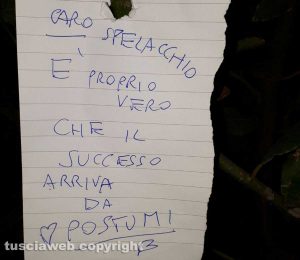 CARO SPELACCHIO
E' PROPRIO
VERO
CHE IL
SUCCESSO
ARRIVA
DA
POSTUMI
tusciaweb copyright